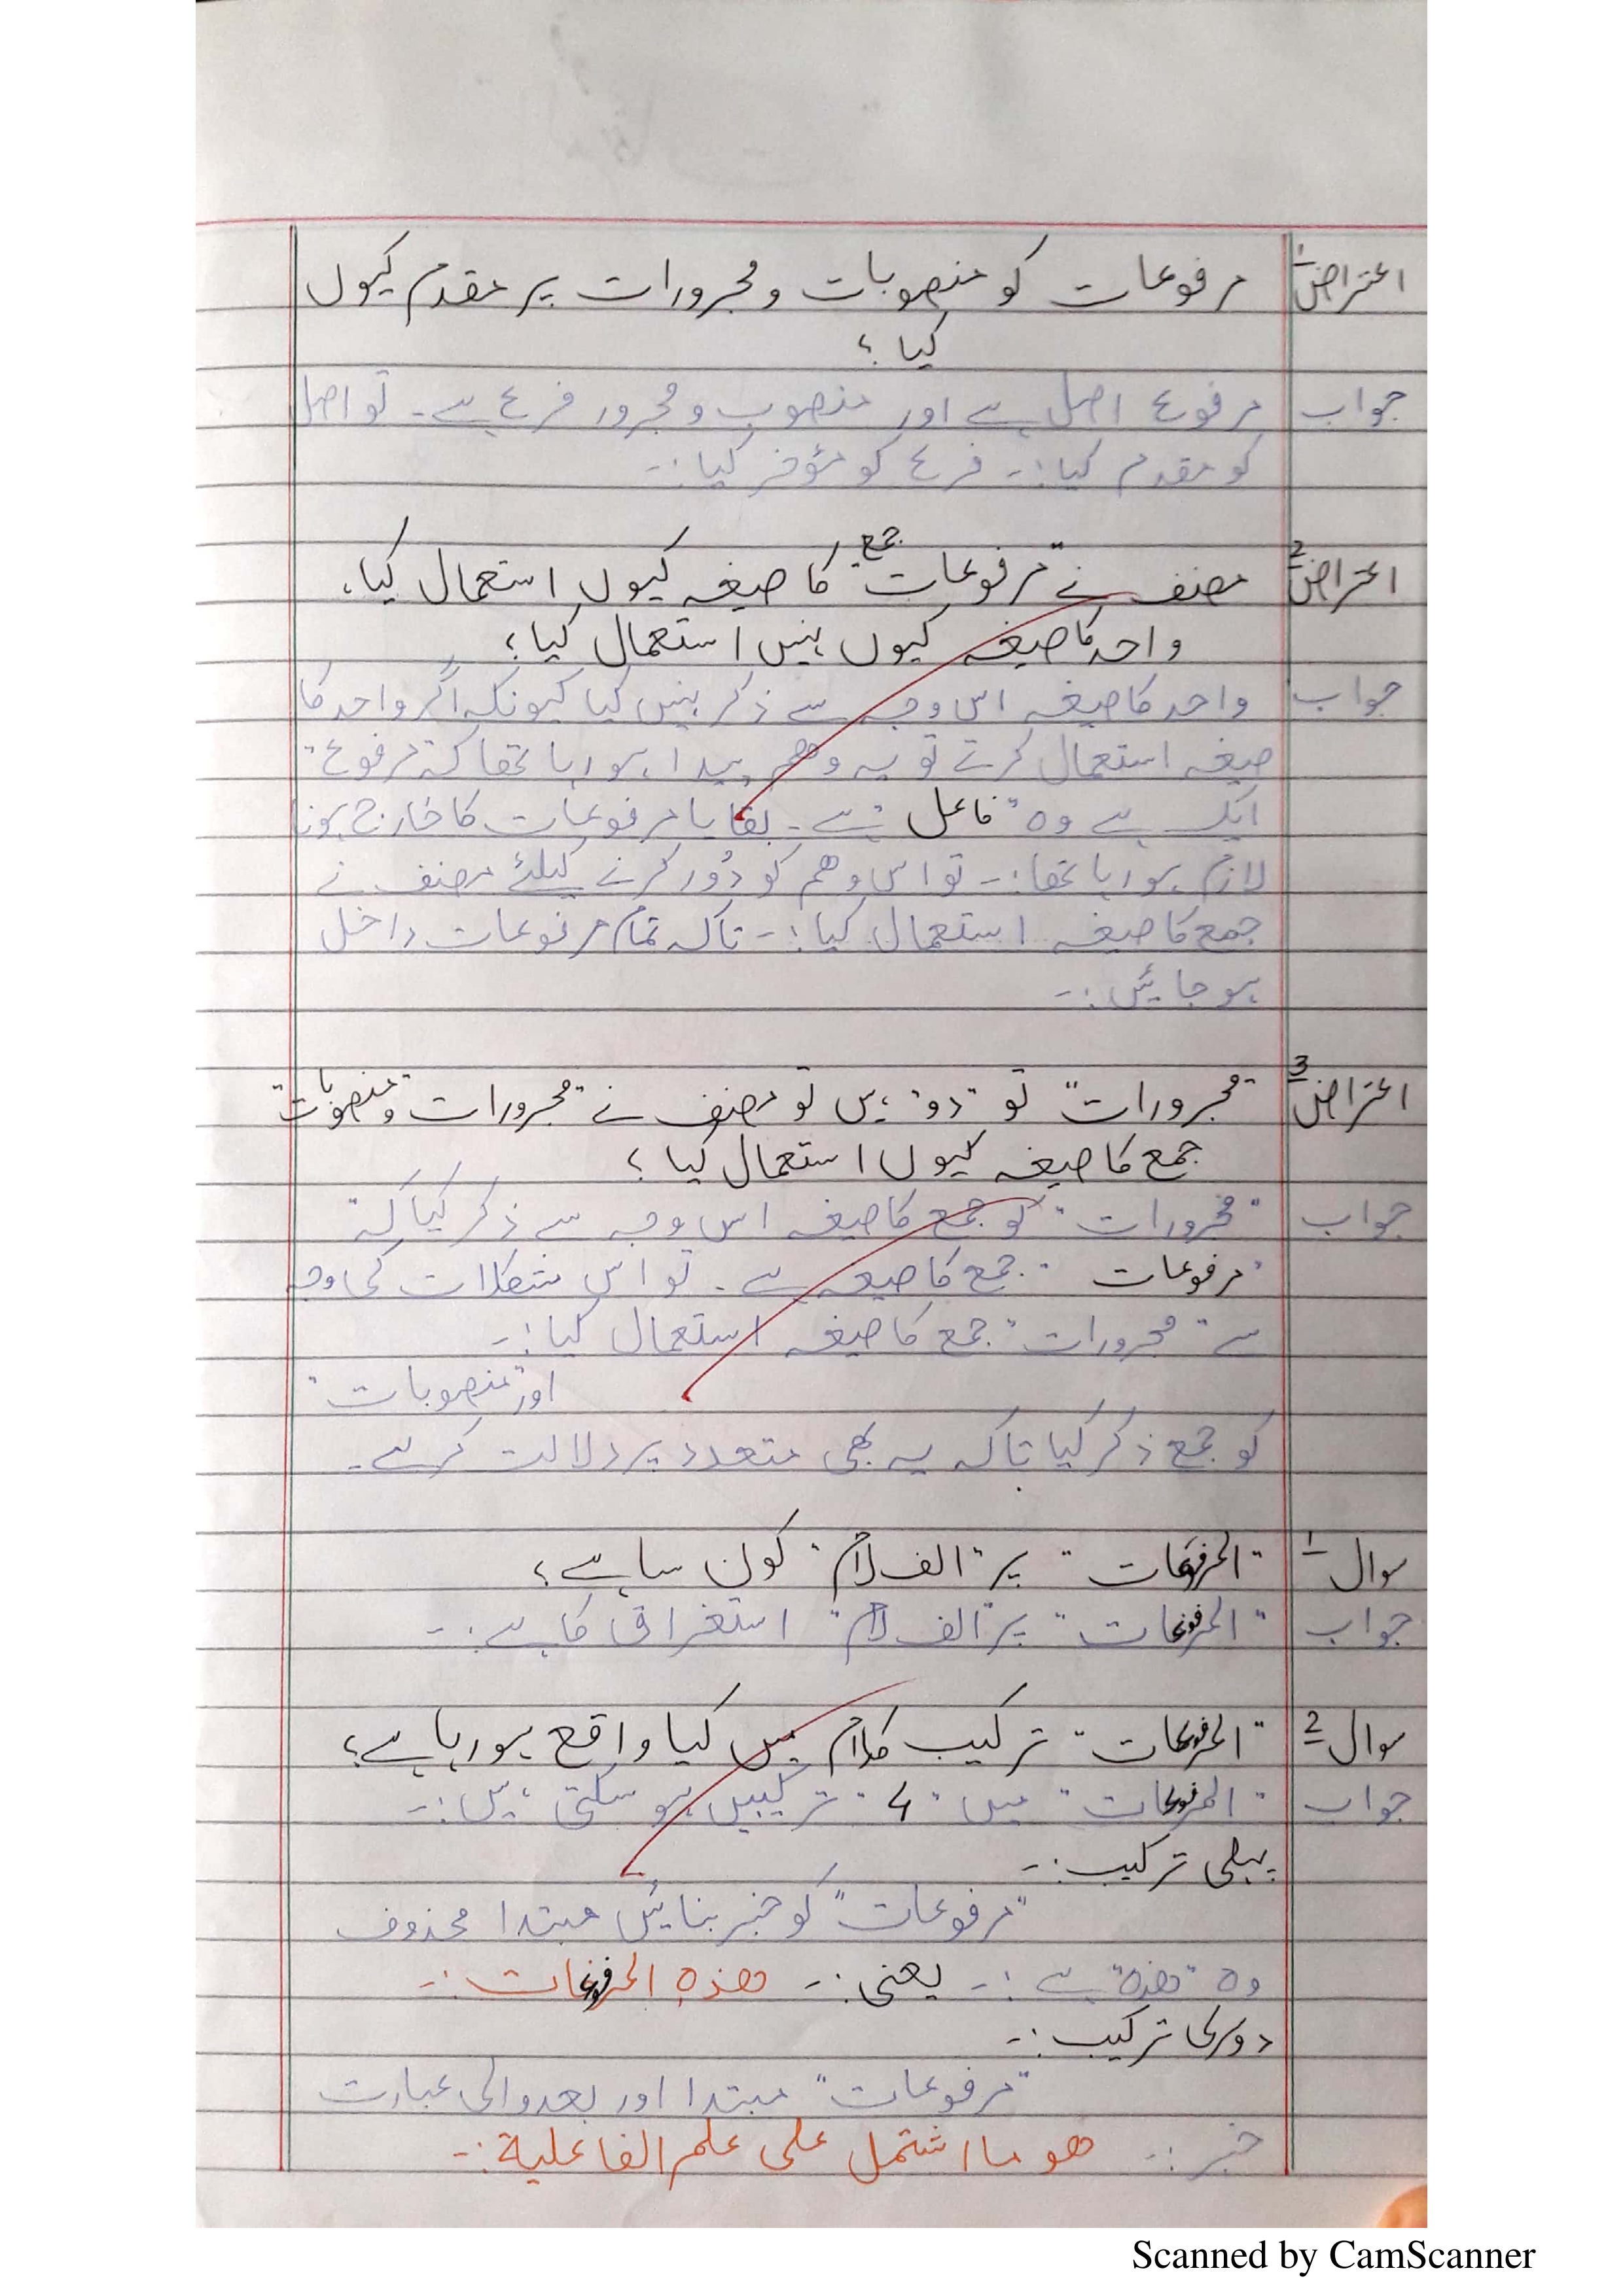 اعتراض1 مرفوعات کو منصوبات و مجرورات پر مقدم کیوں
کیا ؟
جواب مرفوع اصل ہے اور منصوب و مجرور فرع ہے۔ تو اصل
کو مقدم کیا :۔ فرع کو مؤخر کیا :۔
اعتراض2 مصنف نے "مرفوعات" جمع کا صیغہ کیوں استعمال کیا،
واحد کا صیغہ کیوں نہیں استعمال کیا؟
جواب واحد کا صیغہ اس وجہ سے ذکر نہیں کیا کیونکہ اگر واحد کا
صیغہ استعمال کرتے تو یہ وھم پیدا ہو رہا تھا کہ "مرفوع"
ایک ہے وہ "فاعل" ہے۔ بقایا مرفوعات کا خارج ہونا
لازم ہو رہا تھا :۔ تو اس وھم کو دُور کرنے کیلئے مصنف نے
جمع کا صیغہ استعمال کیا :۔ تاکہ تمام مرفوعات داخل
ہو جائیں :۔
اعتراض3 "مجرورات" تو "دو" ہیں تو مصنف نے "مجرورات" و "منصوبات"
جمع کا صیغہ کیوں استعمال کیا ؟
جواب "مجرورات" کو جمع کا صیغہ اس وجہ سے ذکر کیا کہ
"مرفوعات" جمع کا صیغہ ہے۔ تو اس کی وجہ
سے "مجرورات" جمع کا صیغہ استعمال کیا :۔
اور "منصوبات"
کو جمع ذکر کیا تاکہ یہ بھی متعدد پر دلالت کرے۔
سوال1 "المرفوعات" پر "الف لام" کون سا ہے؟
جواب "المرفوعات" پر "الف لام" استغراق کا ہے :۔
سوال2 "المرفوعات" ترکیب کلام میں کیا واقع ہو رہا ہے؟
جواب "المرفوعات" میں "4" ترکیبیں ہو سکتی ہیں :۔
پہلی ترکیب :۔
"مرفوعات" کو خبر بنائیں مبتدا محذوف
وہ "ھذہ" ہے :۔ یعنی :۔ ھذہ المرفوعات :۔
دوسری ترکیب :۔
"مرفوعات" مبتدا اور بعد والی عبارت
خبر :۔ ھو ما اشتمل علی علم الفاعلیة :۔
Scanned by CamScanner